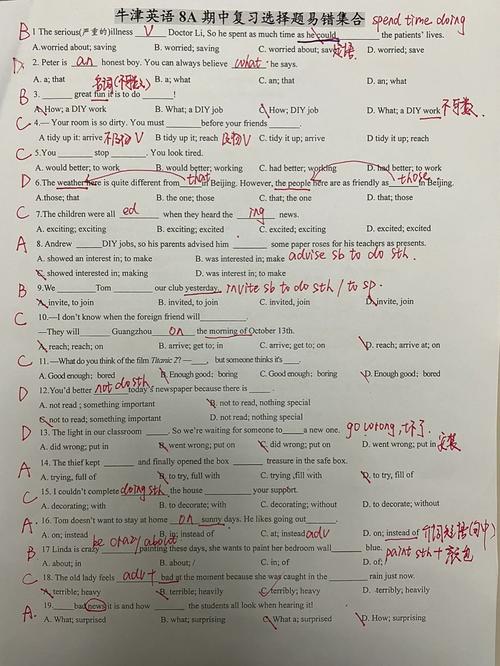 牛津英语 8A 期中复习选择题易错集合
spend time doing
B 1 The serious(严重的)illness V Doctor Li, So he spent as much time as he could ______ the patients' lives.
A.worried about; saving B. worried; saving C. worried about; save D. worried; save
D 2. Peter is an honest boy. You can always believe what he says.
A. a; that B. a; what C. an; that D. an; what
B 3. ______ great fun it is to do ______!
A. How; a DIY work B. What; a DIY job C. How; DIY job D. What; a DIY work 不可数
C 4.— Your room is so dirty. You must ______ before your friends ______.
A tidy up it: arrive 不及物V B tidy up it; reach 及物V C. tidy it up; arrive D. tidy it up; reach
C 5.You ______ stop ______. You look tired.
A. would better; to work B. would better; working C. had better; working D. had better; to work
D 6.The weather here is quite different from that in Beijing. However, the people here are as friendly as those in Beijing.
A.those; that B. the one; those C. that; the one D. that; those
C 7.The children were all ed when they heard the ing news.
A. exciting; exciting B. exciting; excited C. excited; exciting D. excited; excited
A 8. Andrew ______ DIY jobs, so his parents advised him ______ some paper roses for his teachers as presents.
A. showed an interest in; to make B. was interested in; make advise sb to do sth.
C. showed interested in; making D. was interested in; to make
B 9.We ______ Tom ______ our club yesterday. invite sb to do sth / to sp.
A. invite, to join B. invited, to join C. invited, join D. invite, join
C 10.—I don't know when the foreign friend will______.
—They will ______ Guangzhou on the morning of October 13th.
A. reach; reach; on B. arrive; get to; in C. arrive; get to; on D. reach; arrive at; on
C 11.—What do you think of the film Titanic 2? —______, but someone thinks it's ______.
A. Good enough; bored B. Enough good; boring C. Good enough; boring D. Enough good; bored
D 12.You'd better not do sth. today's newspaper because there is ______.
A. not read ; something important B. not to read, nothing special
C. not to read; something important D. not read; nothing special
D 13. The light in our classroom ______. So we're waiting for someone to______a new one. go wrong, 坏了
A. did wrong; put in B. went wrong; put on C. did wrong; put on D. went wrong; put in 安装
A 14. The thief kept ______ and finally opened the box ______ treasure in the safe box.
A. trying, full of B. to try, full with C. trying ,fill with D. to try, fill of
C 15. I couldn't complete doing sth the house ______ your support.
A. decorating; with B. to decorate; with C. decorating; without D. to decorate; without
A 16. Tom doesn't want to stay at home on sunny days. He likes going out______.
A. on; instead B. in; instead of C. at; instead adv D. on; instead of 介词短语(句中)
be crazy about
B 17 Linda is crazy______painting these days, she wants to paint her bedroom wall______ blue.
A. about; in B. about; / C. in; of D. of; paint sth + 颜色
C 18. The old lady feels adv+ bad at the moment because she was caught in the ______ rain just now.
A terrible; heavy B. terrible; heavily C. terribly; heavy
A. 19.______bad news it is and how ______ the students all look when hearing it!
A. What; surprised B. What; surprising C. What a; surprised D. How; surprising